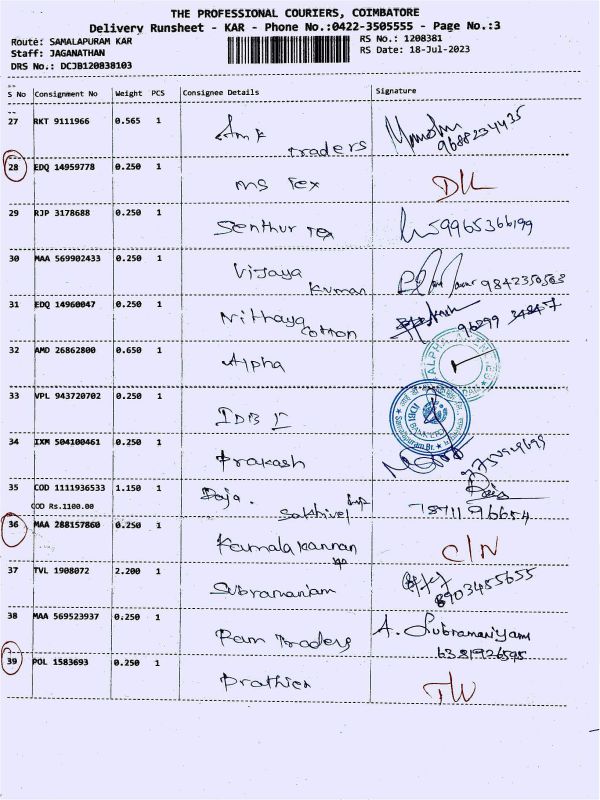 THE PROFESSIONAL COURIERS, COIMBATORE
Delivery Runsheet - KAR - Phone No.:0422-3505555 - Page No.:3
Route: SAMALAPURAM KAR
RS No.: 1208381
Staff: JAGANATHAN
RS Date: 18-Jul-2023
DRS No.: DCJB120838103
S No Consignment No Weight PCS Consignee Details Signature
27 RKT 9111966 0.565 1 Amk
Traders 9688234435
28 EDQ 14959778 0.250 1 MS Tex DL
29 RJP 3178688 0.250 1 Senthur Tex 9965366199
30 MAA 569902433 0.250 1 Vijaya
Kumar 9842350563
31 EDQ 14960047 0.250 1 Nithaya
Cotton 96299 34847
32 AMD 26862800 0.650 1 Alpha ALPHA
33 VPL 943720702 0.250 1 IDBI IDBI BANK
Samalapuram Br.
34 IXM 504100461 0.250 1 Prakash
35 COD 1111936533 1.150 1 Raja.
COD Rs.1100.00 Sakthivel 7871196654
36 MAA 288157860 0.250 1 Kamala kannan C/N
37 TVL 1908072 2.200 1 Subramaniam 8903485655
38 MAA 569523937 0.250 1 Ram Traders A. Subramaniyam
6381926595
39 POL 1583693 0.250 1 Prathien TW